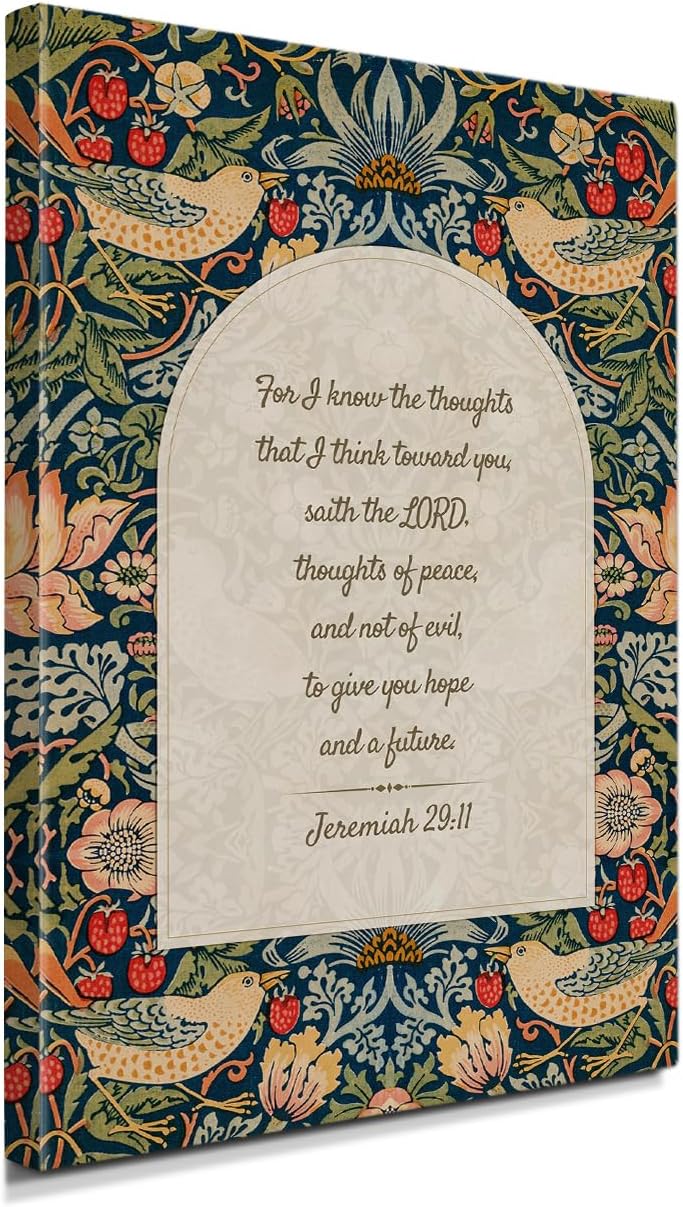 For I know the thoughts
that I think toward you,
saith the LORD,
thoughts of peace,
and not of evil,
to give you hope
and a future.
Jeremiah 29:11